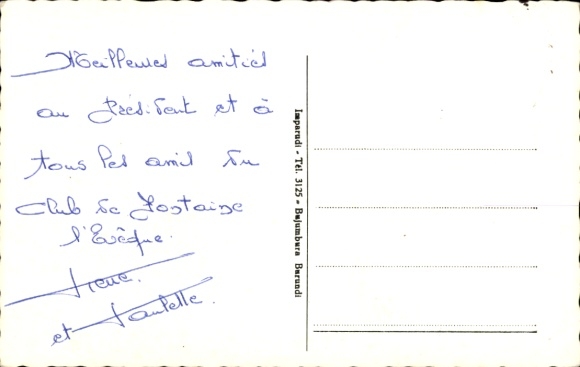 Meilleures amitiés
au Président et à
tous les amis du
Club de Fontaine
l'Evêque.
et Paulette.
Imparudi - Tél. 3125 - Bujumbura Burundi